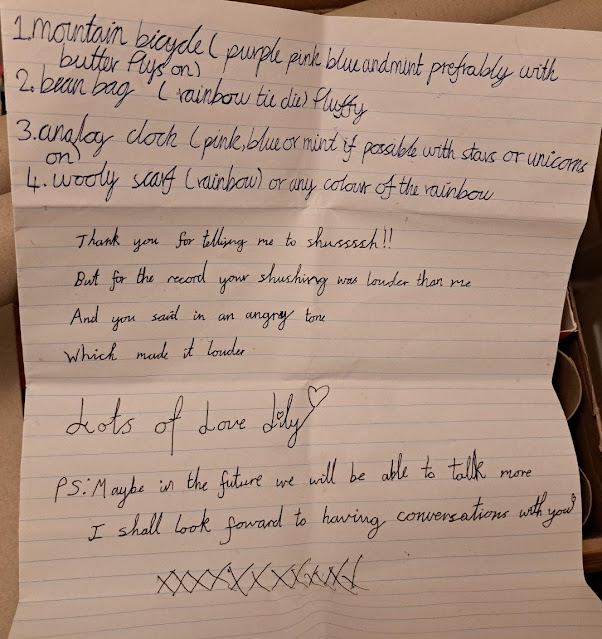 1. mountain bicycle ( purple pink blue and mint prefrably with
butter flys on)
2. bean bag (rainbow tie die) fluffy
3. analog clock (pink, blue or mint if possible with stars or unicorns
on)
4. wooly scarf (rainbow) or any colour of the rainbow
Thank you for telling me to shussssh!!
But for the record your shushing was louder than me
And you said in an angry tone
Which made it louder
Lots of Love Lily
PS: Maybe in the future we will be able to talk more
I shall look foward to having conversations with you
xxxxxxxxxxx